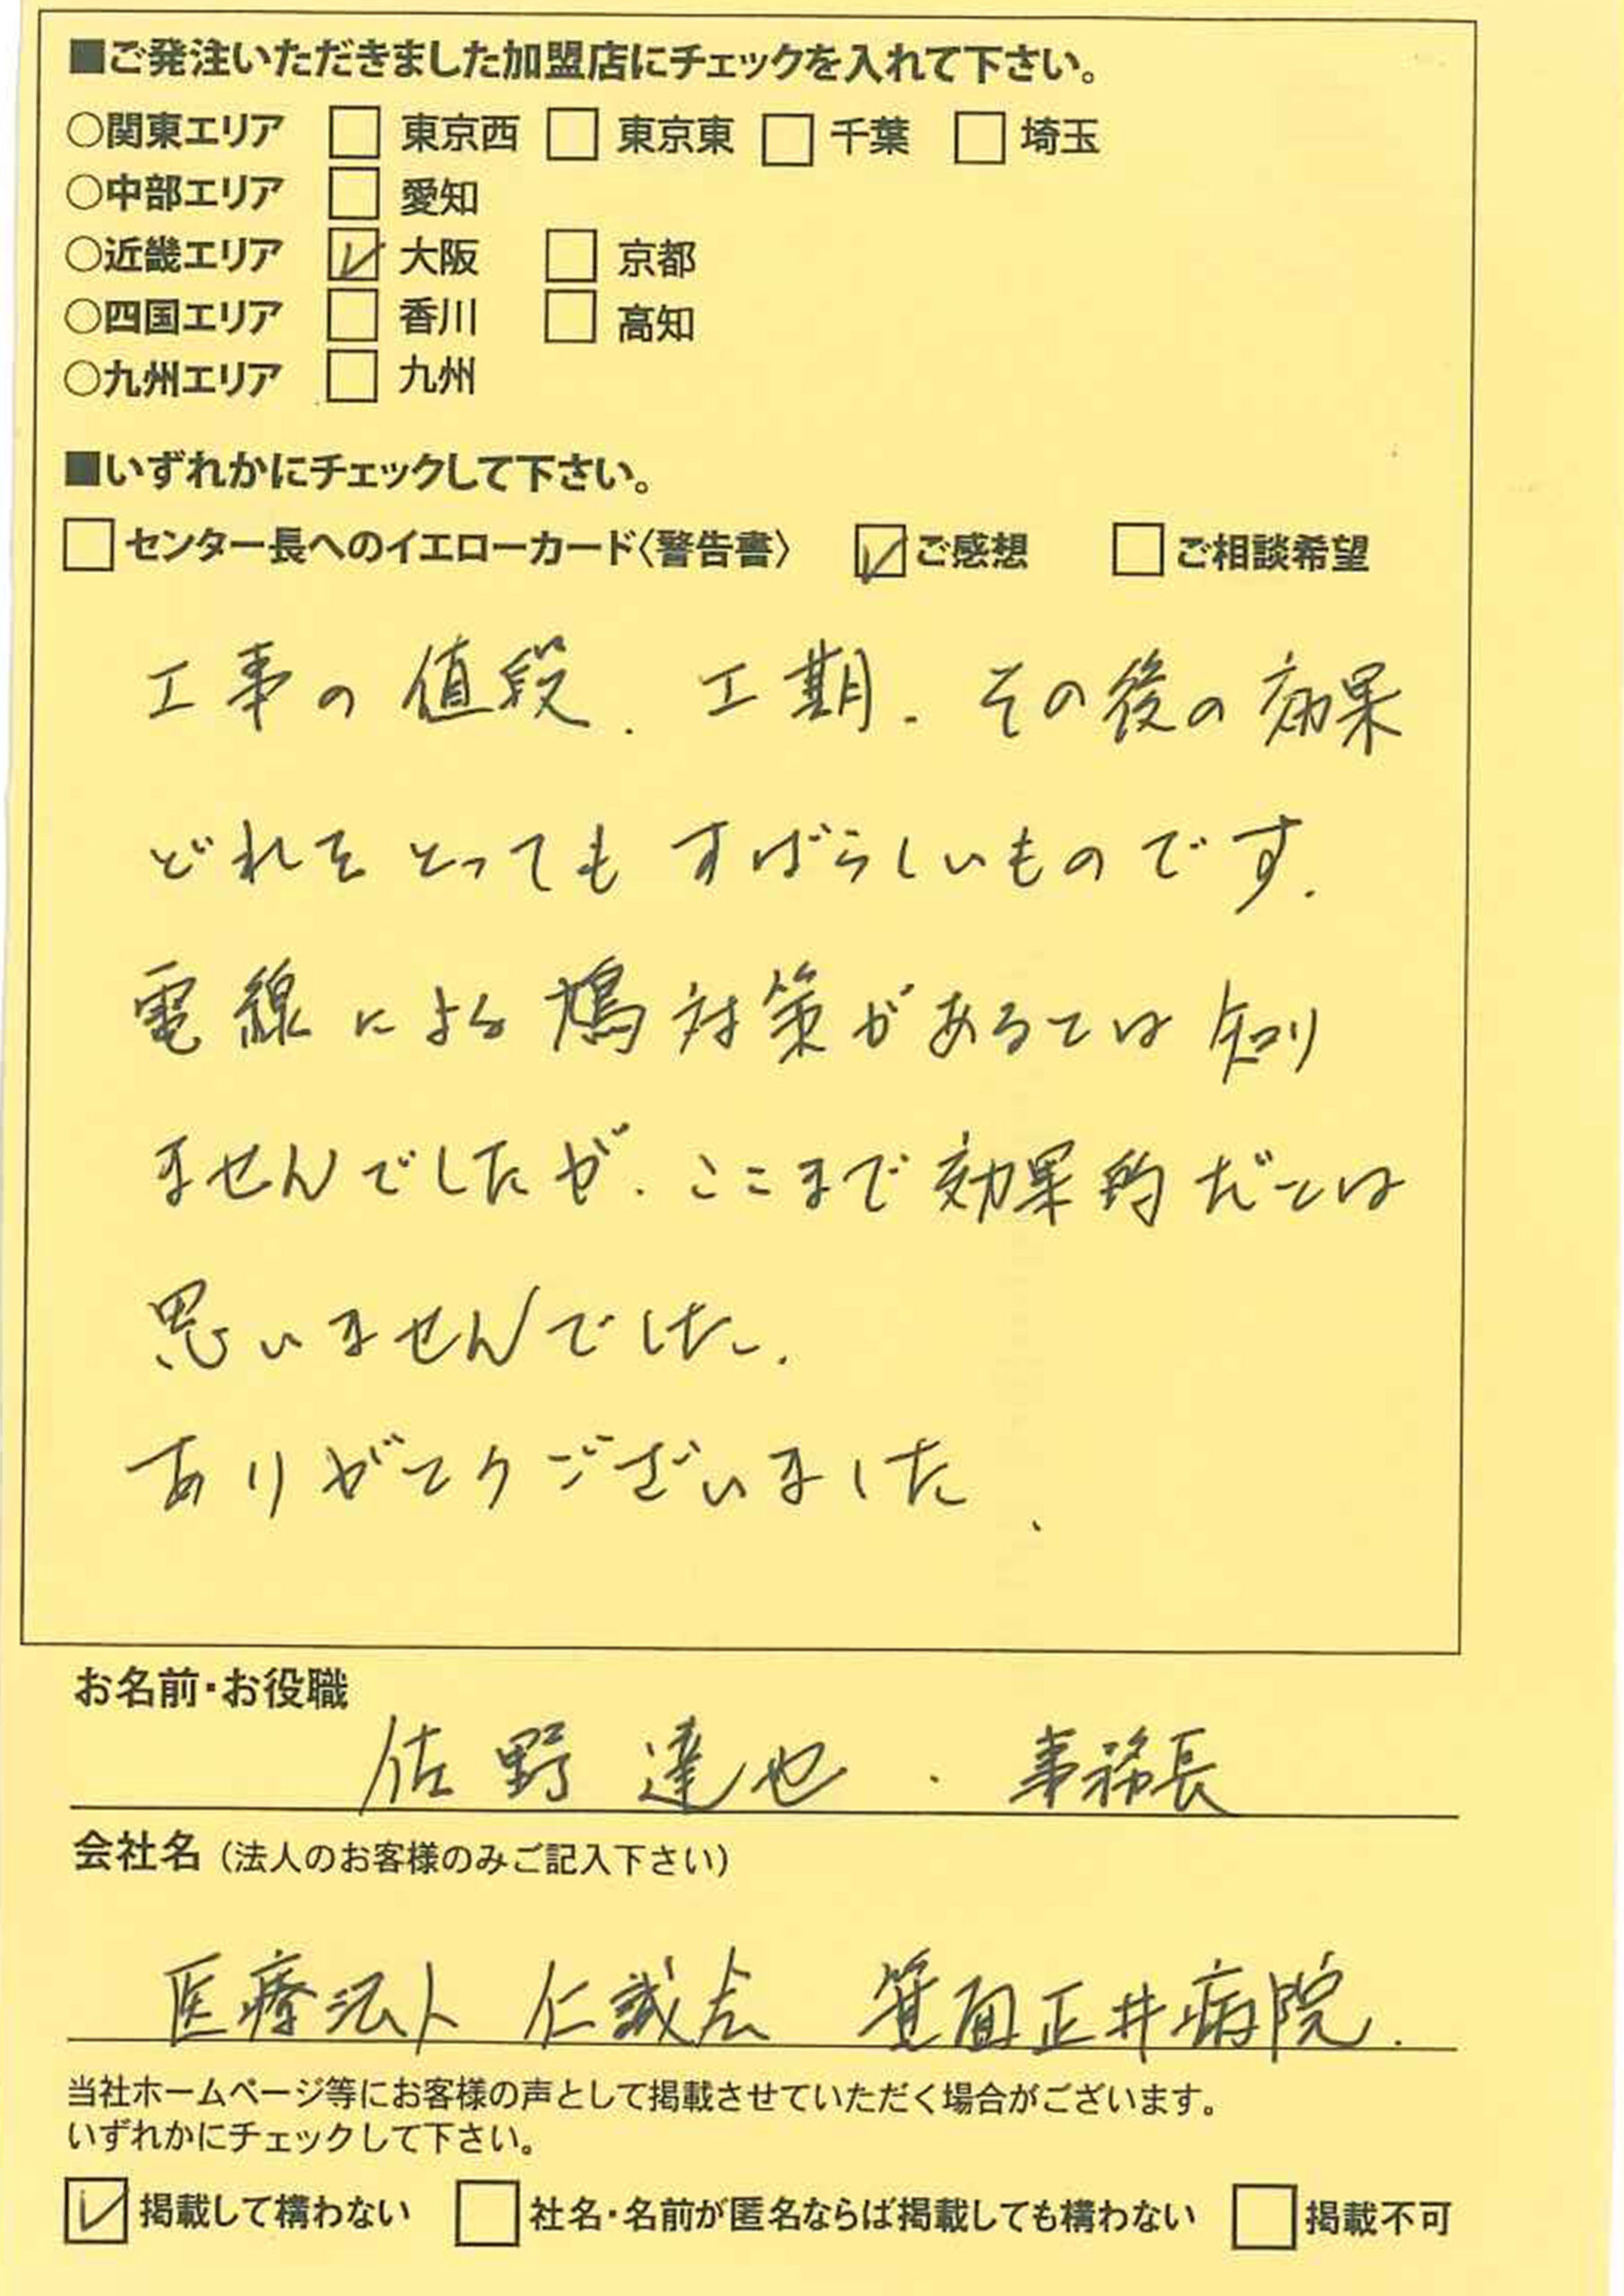 ■ご発注いただきました加盟店にチェックを入れて下さい。
○関東エリア □ 東京西 □ 東京東 □ 千葉 □ 埼玉
○中部エリア □ 愛知
○近畿エリア ☑ 大阪 □ 京都
○四国エリア □ 香川 □ 高知
○九州エリア □ 九州
■いずれかにチェックして下さい。
□センター長へのイエローカード〈警告書〉 ☑ご感想 □ご相談希望
工事の値段. 工期. その後の効果
どれをとってもすばらしいものです.
電線による鳩対策があるとは知り
ませんでしたが. ここまで効果的だとは
思いませんでした.
ありがとうございました.
お名前・お役職
佐野達也 . 事務長
会社名(法人のお客様のみご記入下さい)
医療法人 仁誠会 箕面正井病院.
当社ホームページ等にお客様の声として掲載させていただく場合がございます。
いずれかにチェックして下さい。
☑掲載して構わない □社名・名前が匿名ならば掲載しても構わない □掲載不可